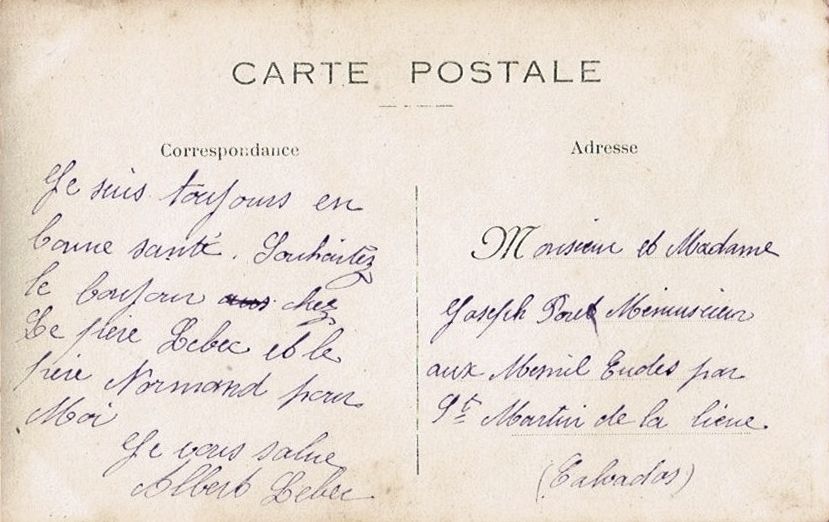 CARTE POSTALE
Correspondance
Je suis toujours en
bonne santé. Souhaitez
le bonjour aus chez
Le père Lebec et le
père Normand pour
Moi
Je vous salue
Albert Lebec
Adresse
Monsieur et Madame
Joseph Poret Menuisier
aux Mesnil Eudes par
St Martin de la lieue
(Calvados)